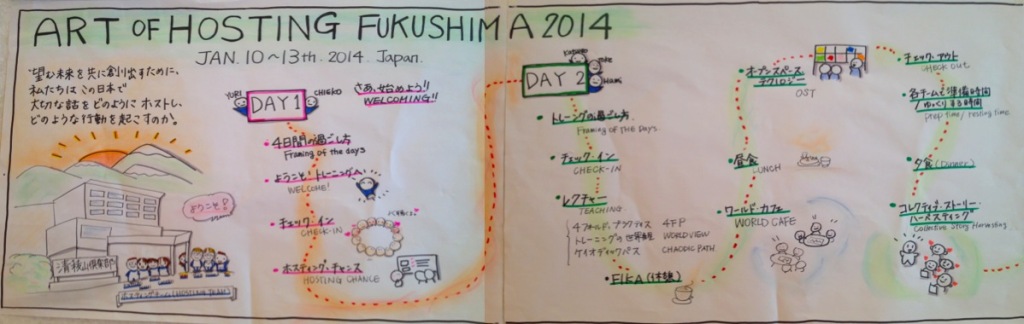 ART OF HOSTING FUKUSHIMA 2014
JAN. 10~13th. 2014. Japan.
望む未来を共に創り出すために、
私たちは この日本で
大切な話をどのようにホストし、
どのような行動を起こすのか。
ようこそ!
YURI
CHIEKO
DAY 1
さあ、始めよう!!
WELCOMING!!
4日間の過ごし方
Framing of the days
ようこそ!トレーニングへ
WELCOME!
チェック・イン
CHECK-IN
ホスティング・チャンス
HOSTING CHANCE
DAY 2
トレーニングの過ごし方
Framing OF THE Days
チェック・イン
CHECK-IN
レクチャー
TEACHING
4フォールド・プラクティス 4FP
トレーニングの世界観 WORLDVIEW
ケイオディックパス CHAODIC PATH
EIKA (体験)
オープンスペース
テクノロジー
OST
昼食
LUNCH
ワールド・カフェ
WORLD CAFE
チェック・アウト
CHECK OUT
各チームで準備時間
/ゆっくりする時間
Prep time / resting time
夕食 (Dinner)
コレクティブ・ストーリー・
ハーベスティング
Collective Story Harvesting